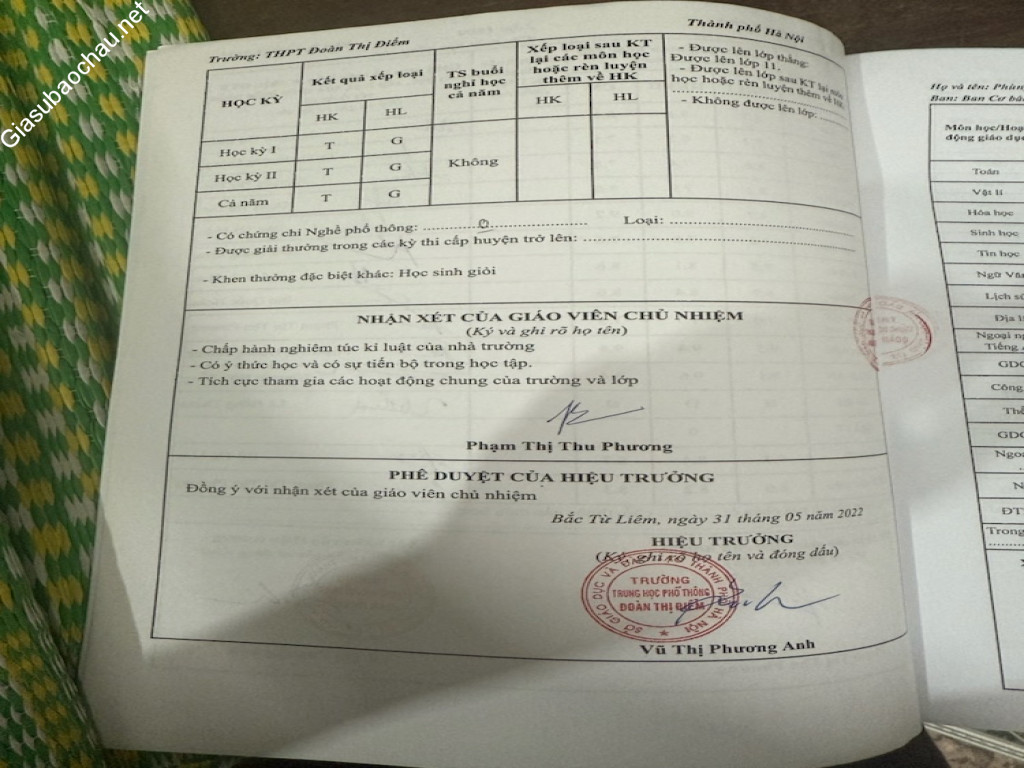 Giasubaochau.net
Trường: THPT Đoàn Thị Điểm
Thành phố Hà Nội
HỌC KỲ
Kết quả xếp loại
TS buổi
nghỉ học
cả năm
Xếp loại sau KT
lại các môn học
hoặc rèn luyện
thêm về HK
- Được lên lớp thẳng:
Được lên lớp 11.
- Được lên lớp sau KT lại môn
học hoặc rèn luyện thêm về HK
- Không được lên lớp:
HK HL HK HL
Học kỳ I T G
Không
Học kỳ II T G
Cả năm T G
- Có chứng chỉ Nghề phổ thông: Loại:
- Được giải thưởng trong các kỳ thi cấp huyện trở lên:
- Khen thưởng đặc biệt khác: Học sinh giỏi
NHẬN XÉT CỦA GIÁO VIÊN CHỦ NHIỆM
(Ký và ghi rõ họ tên)
- Chấp hành nghiêm túc kỉ luật của nhà trường
- Có ý thức học và có sự tiến bộ trong học tập.
- Tích cực tham gia các hoạt động chung của trường và lớp
Phạm Thị Thu Phương
PHÊ DUYỆT CỦA HIỆU TRƯỞNG
Đồng ý với nhận xét của giáo viên chủ nhiệm
Bắc Từ Liêm, ngày 31 tháng 05 năm 2022
HIỆU TRƯỞNG
(Ký, ghi rõ họ tên và đóng dấu)
SỞ GIÁO DỤC VÀ ĐÀO TẠO THÀNH PHỐ HÀ NỘI
TRƯỜNG
TRUNG HỌC PHỔ THÔNG
ĐOÀN THỊ ĐIỂM
Vũ Thị Phương Anh
Họ và tên:
Ban: Ban Cơ
Môn học/Hoạt
động giáo dục
Toán
Vật lí
Hóa học
Sinh học
Tin học
Ngữ Văn
Lịch
Địa
Ngoại
Tiếng
Công
Trong